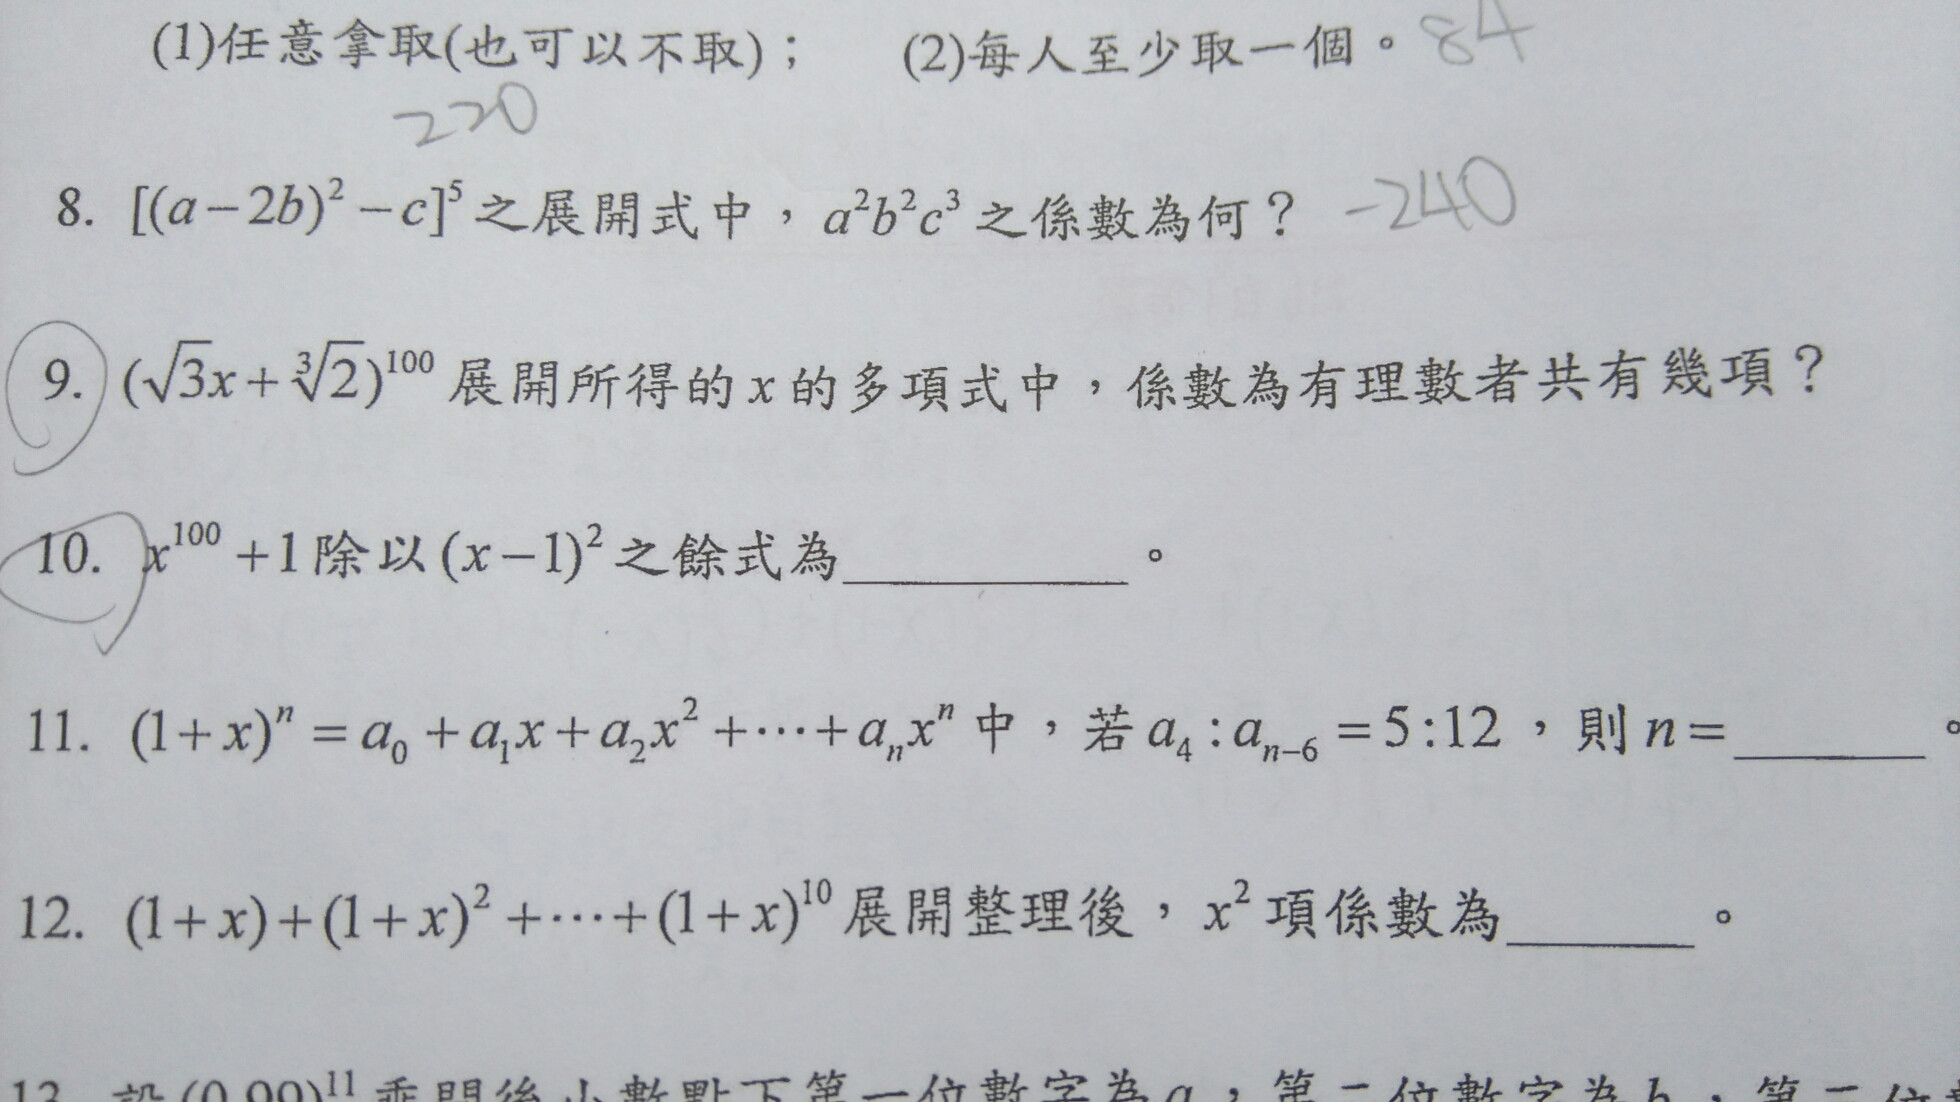 (1)任意拿取(也可以不取)； (2)每人至少取一個。 84
220
8. [(a-2b)²-c]⁵之展開式中，a²b²c³之係數為何？ -240
9. (√3x+∛2)¹⁰⁰展開所得的x的多項式中，係數為有理數者共有幾項？
10. x¹⁰⁰+1除以(x-1)²之餘式為________。
11. (1+x)ⁿ=a₀+a₁x+a₂x²+⋯+aₙxⁿ中，若a₄:aₙ₋₆=5:12，則n=______。
12. (1+x)+(1+x)²+⋯+(1+x)¹⁰展開整理後，x²項係數為______。
13. 設(0.99)¹¹乘開後小數點下第一位數字為a，第二位數字為b，第三位